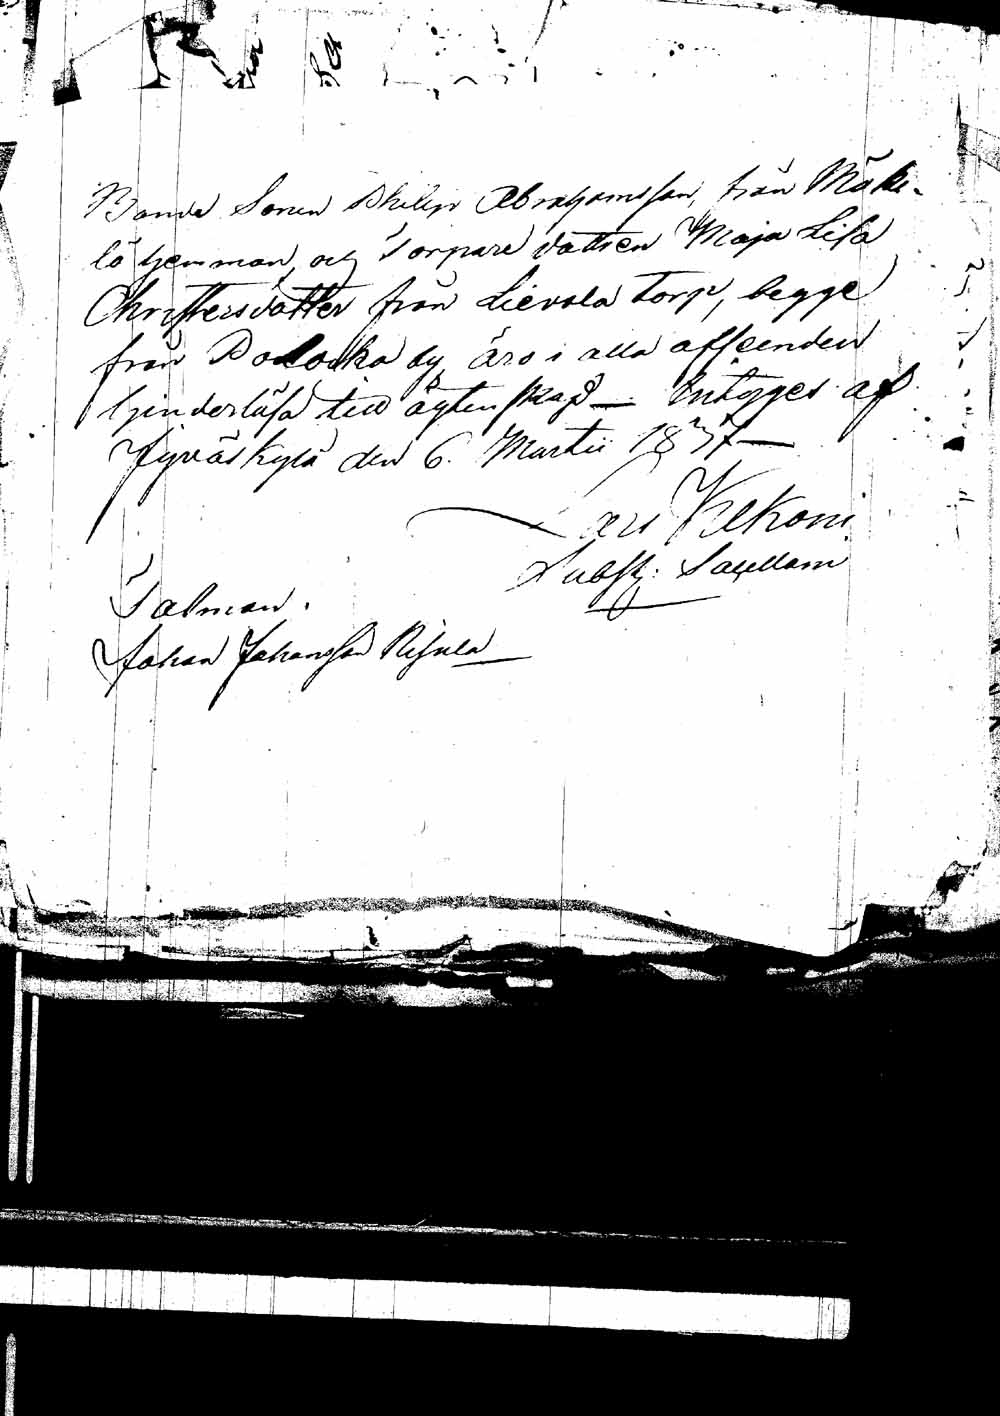 Bonde Sonen Philip Abrahamsson, från Mäke-
lä hemman, och Torpare dottren Maja Lisa
Christersdotter från Lievola Torp, begge
från Palocka by, äro i alla afseenden
hinderlösa till ägtenskap — Intygges af
Jyväskylä den 6. Martii 1837 —
Lars Kekoni
Subst: Sacellam
Talman.
Johan Johansson Rihula